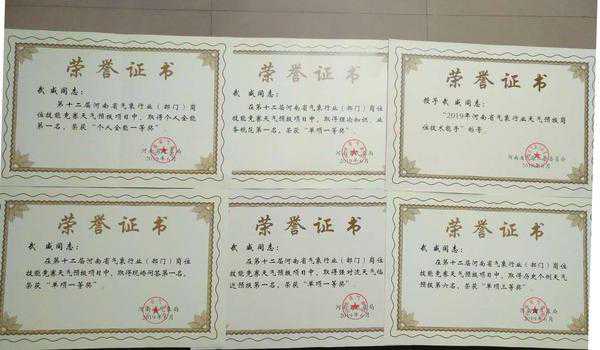 荣誉证书
武威同志：
第十二届河南省气象行业（部门）岗
位技能竞赛天气预报项目中，取得个人全能
第一名，荣获“个人全能一等奖”。
河南省气象局
2019年6月
荣誉证书
武威同志：
在第十二届河南省气象行业（部门）岗位
技能竞赛天气预报项目中，取得理论知识、业
务规范第一名，荣获“单项一等奖”。
2019年6月
荣誉证书
授予武威同志：
“2019年河南省气象行业天气预报岗
位技术能手”称号。
荣誉证书
武威同志：
在第十二届河南省气象行业（部门）岗位
技能竞赛天气预报项目中，取得现场问答第一名，
荣获“单项一等奖”。
2019年6月
荣誉证书
武威同志：
在第十二届河南省气象行业（部门）岗位
技能竞赛天气预报项目中，取得强对流天气临
近预报第一名，荣获“单项一等奖”。
2019年6月
荣誉证书
武威同志：
在第十二届河南省气象行业（部门）岗位
技能竞赛天气预报项目中，取得历史个例天气
预报第六名，荣获“单项三等奖”。
2019年6月